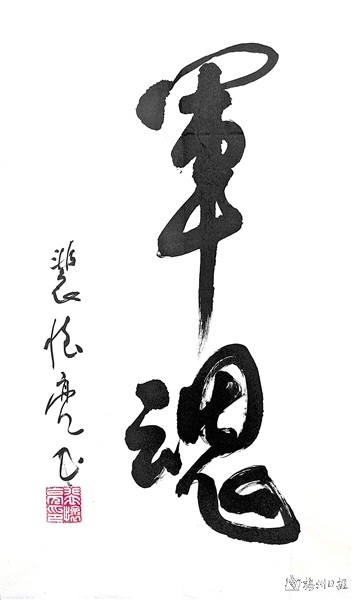 軍魂
裴怀亮书
梅州日报